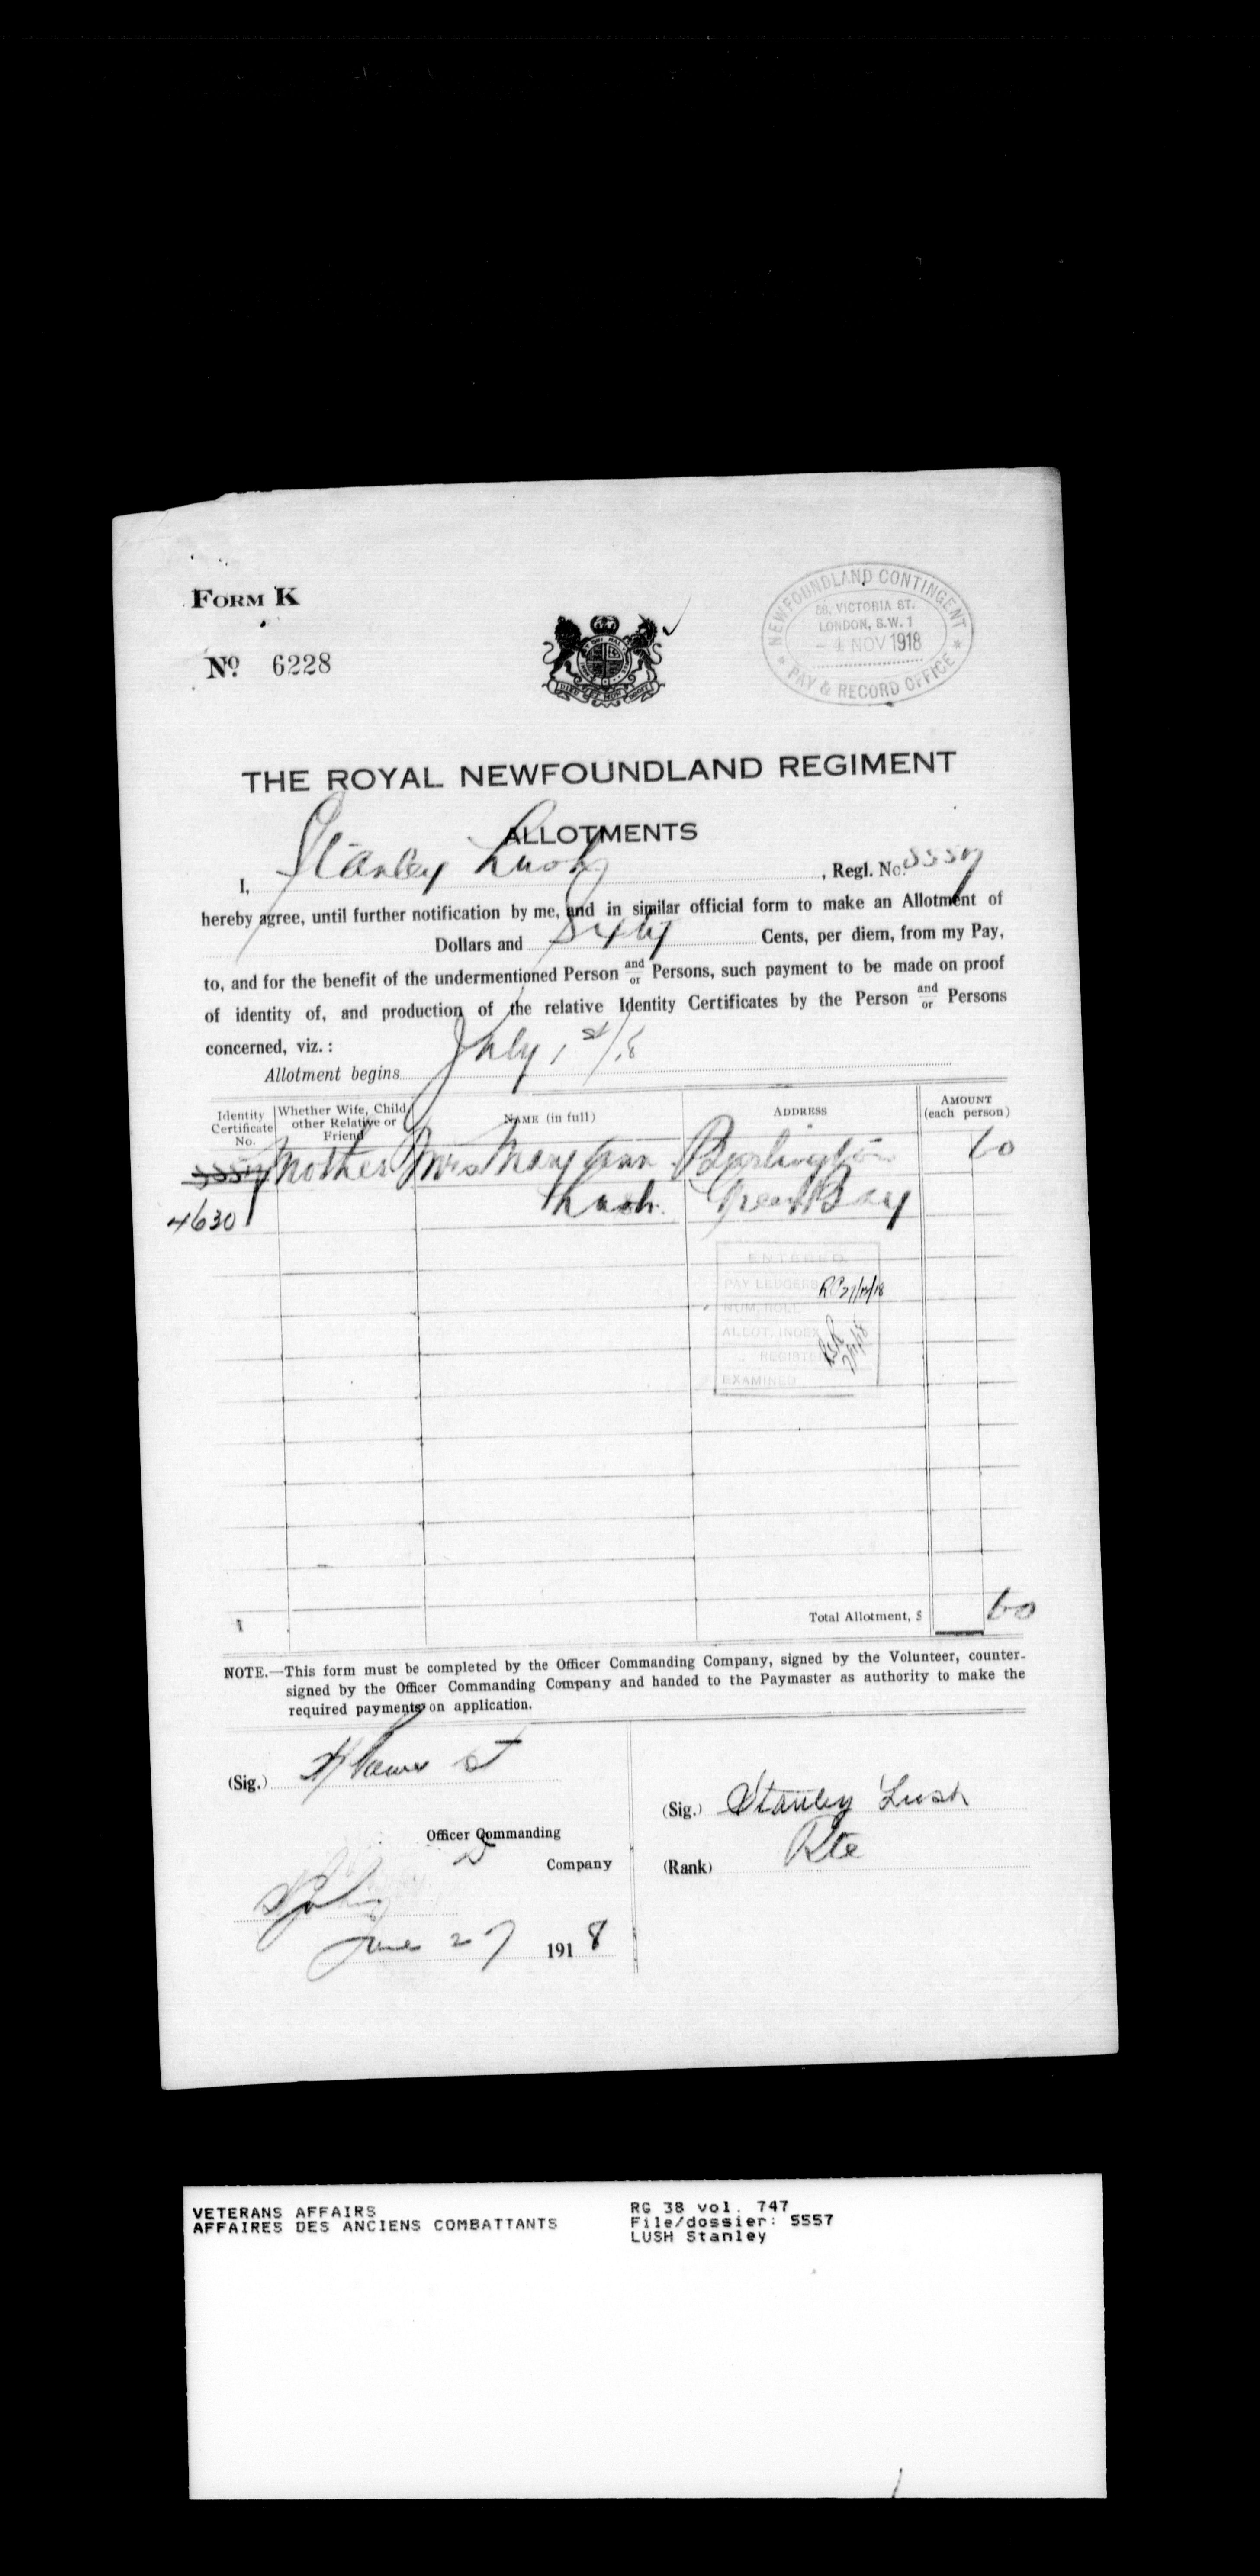 FORM K
No. 6228
NEWFOUNDLAND CONTINGENT
58, VICTORIA ST.
LONDON, S.W. 1
- 4 NOV 1918
PAY & RECORD OFFICE
THE ROYAL NEWFOUNDLAND REGIMENT
ALLOTMENTS
I, Stanley Lush, Regl. No. 5557
hereby agree, until further notification by me, and in similar official form to make an Allotment of
Dollars and Sixty Cents, per diem, from my Pay,
to, and for the benefit of the undermentioned Person and/or Persons, such payment to be made on proof
of identity of, and production of the relative Identity Certificates by the Person and/or Persons
concerned, viz. :
Allotment begins July 1st/18
Identity Certificate No.
Whether Wife, Child, other Relative or Friend
NAME (in full)
ADDRESS
AMOUNT (each person)
5557 Mother Mrs Mary Ann Burlington 60
4630 Lush Green Bay
ENTERED
PAY LEDGERS
NUM. ROLL
ALLOT. INDEX
REGISTER
EXAMINED
Total Allotment, $ 60
NOTE.—This form must be completed by the Officer Commanding Company, signed by the Volunteer, counter-
signed by the Officer Commanding Company and handed to the Paymaster as authority to make the
required payments on application.
(Sig.)
Officer Commanding
D Company
(Sig.) Stanley Lush
(Rank) Pte
June 27 1918
VETERANS AFFAIRS
AFFAIRES DES ANCIENS COMBATTANTS
RG 38 vol. 747
File/dossier: 5557
LUSH Stanley